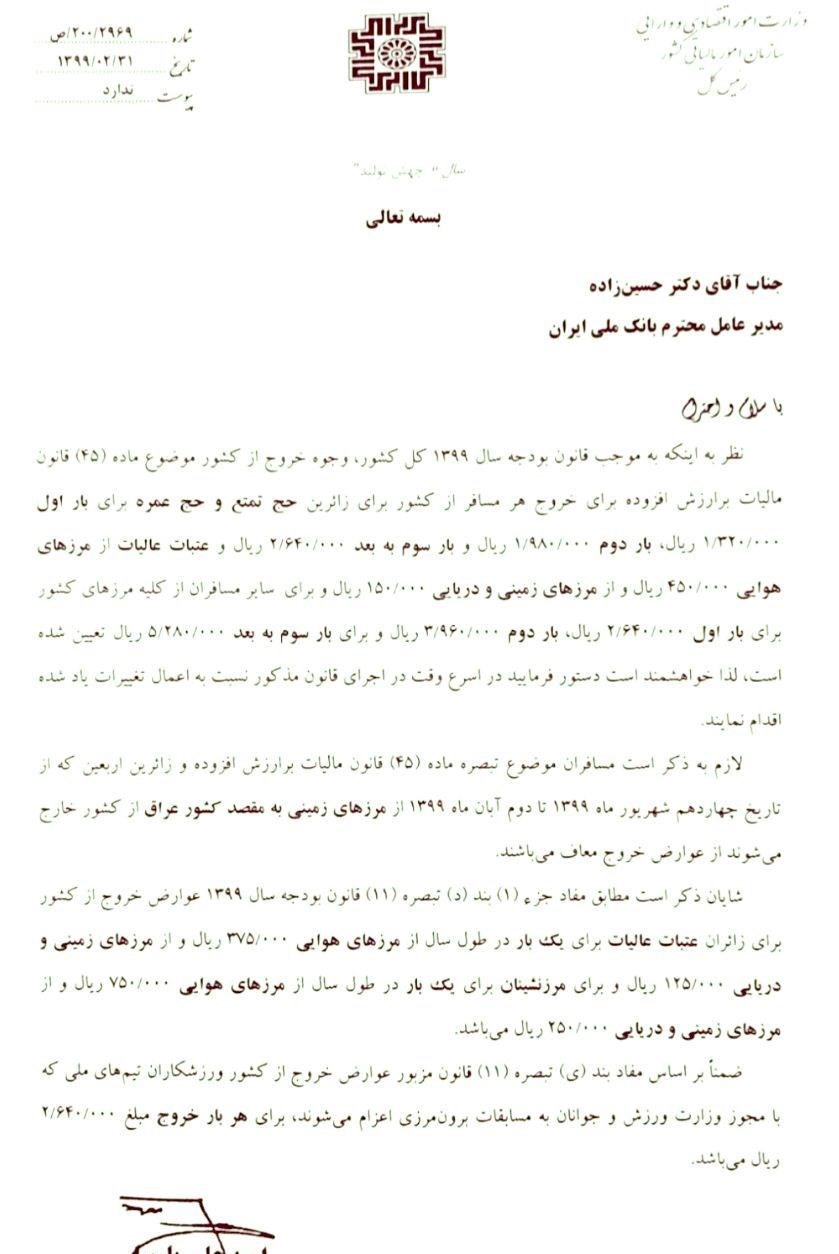 وزارت امور اقتصادی و دارایی
سازمان امور مالیاتی کشور
رئیس کل
شماره ۲۰۰/۲۹۶۹/ص
تاریخ ۱۳۹۹/۰۲/۳۱
پیوست ندارد
سال "جهش تولید"
بسمه تعالی
جناب آقای دکتر حسین‌زاده
مدیر عامل محترم بانک ملی ایران
با سلام و احترام
نظر به اینکه به موجب قانون بودجه سال ۱۳۹۹ کل کشور، وجوه خروج از کشور موضوع ماده (۴۵) قانون
مالیات برارزش افزوده برای خروج هر مسافر از کشور برای زائرین حج تمتع و حج عمره برای بار اول
۱/۳۲۰/۰۰۰ ریال، بار دوم ۱/۹۸۰/۰۰۰ ریال و بار سوم به بعد ۲/۶۴۰/۰۰۰ ریال و عتبات عالیات از مرزهای
هوایی ۴۵۰/۰۰۰ ریال و از مرزهای زمینی و دریایی ۱۵۰/۰۰۰ ریال و برای سایر مسافران از کلیه مرزهای کشور
برای بار اول ۲/۶۴۰/۰۰۰ ریال، بار دوم ۳/۹۶۰/۰۰۰ ریال و برای بار سوم به بعد ۵/۲۸۰/۰۰۰ ریال تعیین شده
است، لذا خواهشمند است دستور فرمایید در اسرع وقت در اجرای قانون مذکور نسبت به اعمال تغییرات یاد شده
اقدام نمایند.
لازم به ذکر است مسافران موضوع تبصره ماده (۴۵) قانون مالیات برارزش افزوده و زائرین اربعین که از
تاریخ چهاردهم شهریور ماه ۱۳۹۹ تا دوم آبان ماه ۱۳۹۹ از مرزهای زمینی به مقصد کشور عراق از کشور خارج
می‌شوند از عوارض خروج معاف می‌باشند.
شایان ذکر است مطابق مفاد جزء (۱) بند (د) تبصره (۱۱) قانون بودجه سال ۱۳۹۹ عوارض خروج از کشور
برای زائران عتبات عالیات برای یک بار در طول سال از مرزهای هوایی ۳۷۵/۰۰۰ ریال و از مرزهای زمینی و
دریایی ۱۲۵/۰۰۰ ریال و برای مرزنشینان برای یک بار در طول سال از مرزهای هوایی ۷۵۰/۰۰۰ ریال و از
مرزهای زمینی و دریایی ۲۵۰/۰۰۰ ریال می‌باشد.
ضمناً بر اساس مفاد بند (ی) تبصره (۱۱) قانون مزبور عوارض خروج از کشور ورزشکاران تیم‌های ملی که
با مجوز وزارت ورزش و جوانان به مسابقات برون‌مرزی اعزام می‌شوند، برای هر بار خروج مبلغ ۲/۶۴۰/۰۰۰
ریال می‌باشد.